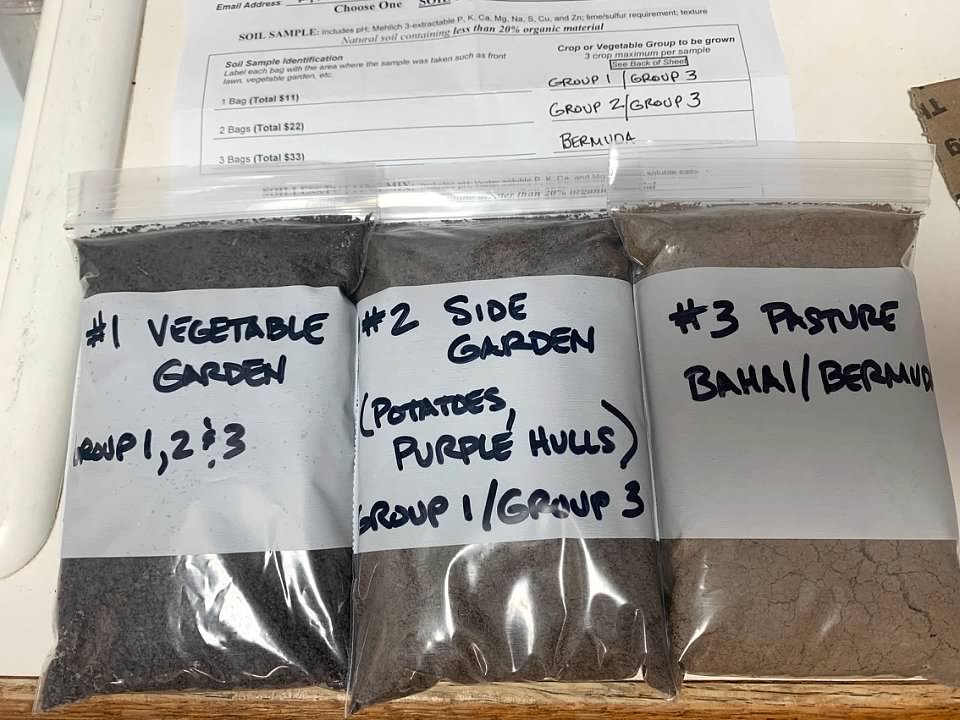 Email Address
Choose One
SOIL SAMPLE: Includes pH; Mehlich 3-extractable P, K, Ca, Mg, Na, S, Cu, and Zn; lime/sulfur requirement; texture
Natural soil containing less than 20% organic material
Soil Sample Identification
Label each bag with the area where the sample was taken such as front
lawn, vegetable garden, etc.
Crop or Vegetable Group to be grown
3 crop maximum per sample
See Back of Sheet
1 Bag (Total $11)
GROUP 1 / GROUP 3
2 Bags (Total $22)
GROUP 2/GROUP 3
3 Bags (Total $33)
BERMUDA
#1 VEGETABLE
GARDEN
GROUP 1, 2 & 3
#2 SIDE
GARDEN
(POTATOES,
PURPLE HULLS)
GROUP 1/GROUP 3
#3 PASTURE
BAHAI/BERMUD